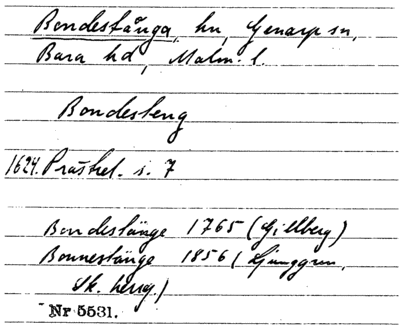 Bondestånga, hn, Genarp sn,
Bara hd, Malm. l.
Bondesteng
1624. Pråstrel. s. 7
Bondestänge 1765 (Gillberg)
Bonnestänge 1856 (Ljunggren,
Sk. herrg.)
Nr 5531.